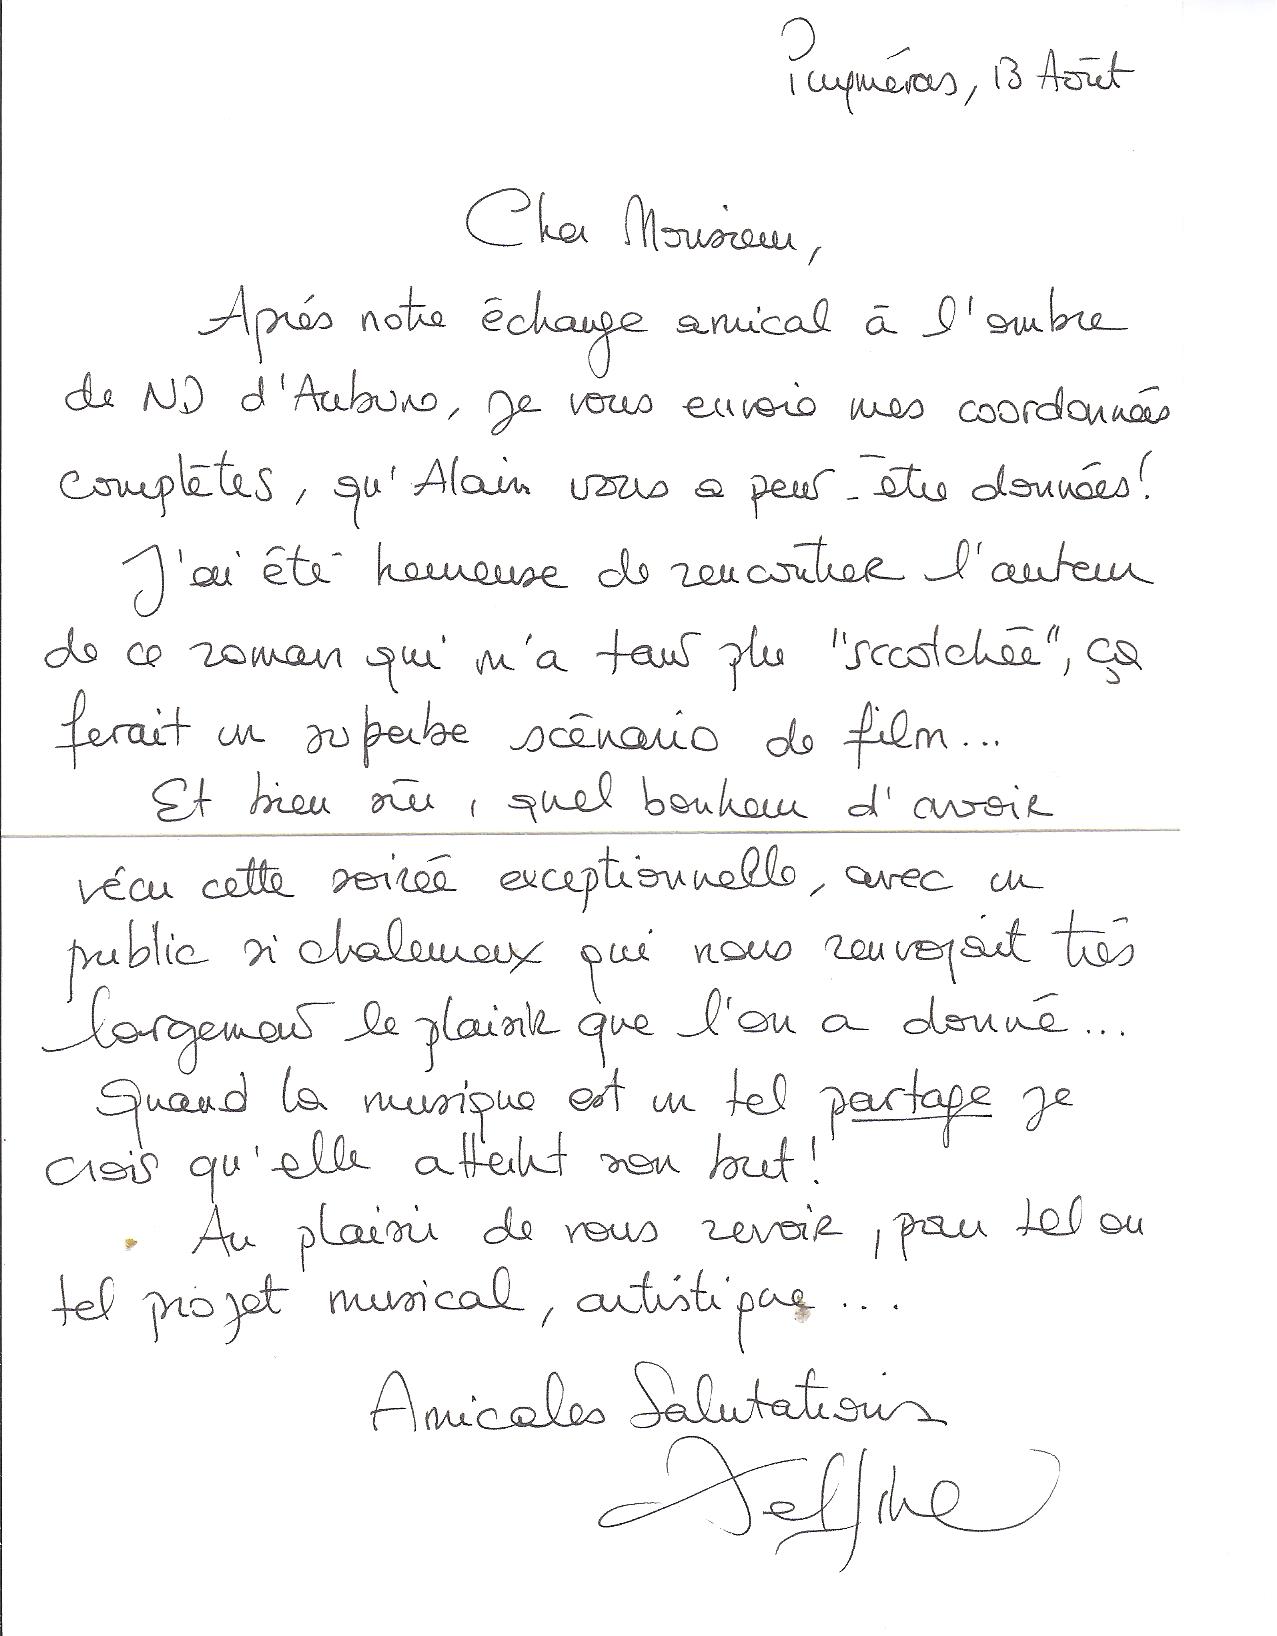 Puyméras, 13 Août
Cher Monsieur,
Après notre échange amical à l'ombre
de ND d'Aubune, je vous envoie mes coordonnées
complètes, qu'Alain vous a peut-être données!
J'ai été heureuse de rencontrer l'auteur
de ce roman qui m'a tant plu "sccotchée", ça
ferait un superbe scénario de film...
Et bien sûr, quel bonheur d'avoir
vécu cette soirée exceptionnelle, avec un
public si chaleureux qui nous renvoyait très
largement le plaisir que l'on a donné...
Quand la musique est un tel partage je
crois qu'elle atteint son but!
Au plaisir de vous revoir, pour tel ou
tel projet musical, artistique...
Amicales Salutations
Delfine